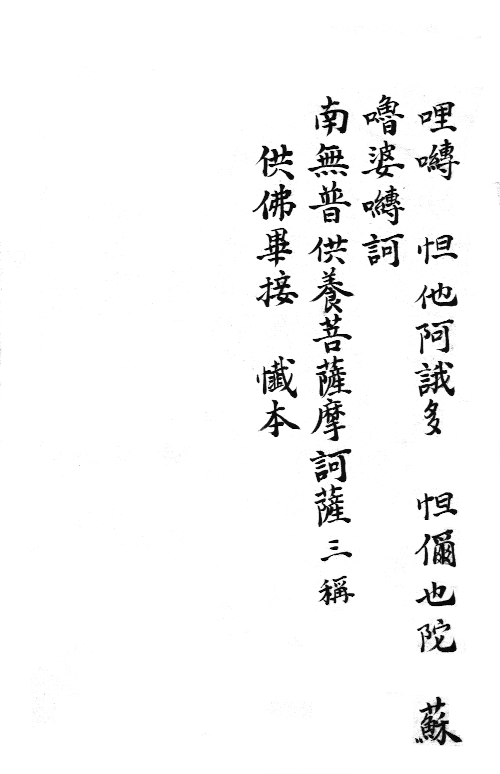 哩囀 怛他阿誐多 怛儞也陀 蘇
嚕婆囀訶
南無普供養菩薩摩訶薩三稱
供佛畢接 懺本